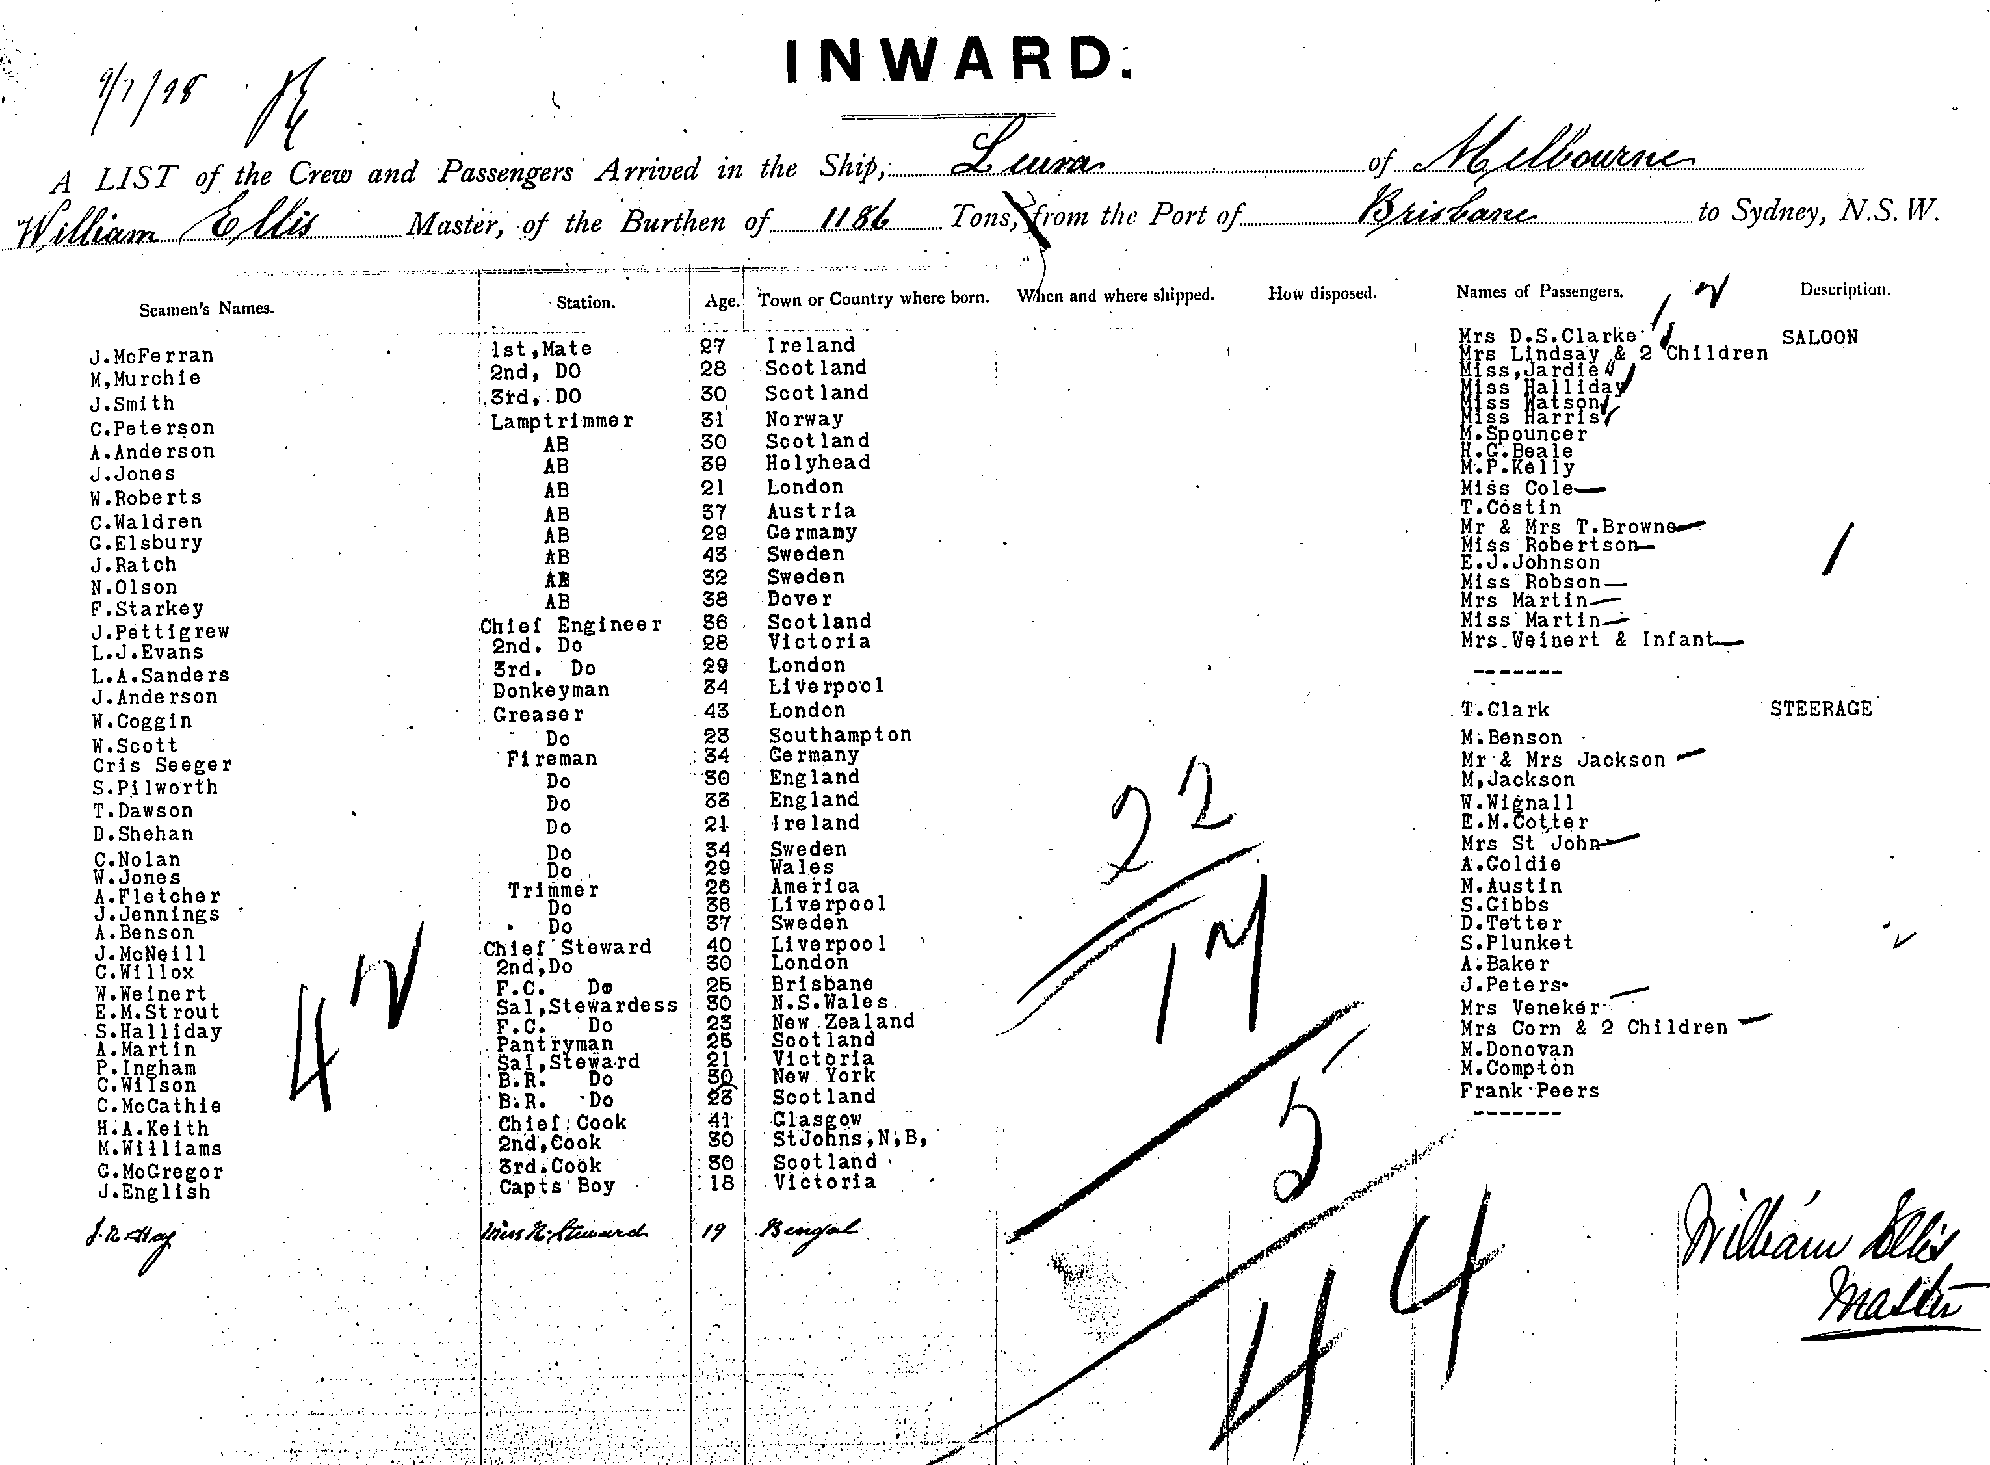 INWARD.
9/7/98
A LIST of the Crew and Passengers Arrived in the Ship, Leura of Melbourne
William Ellis Master, of the Burthen of 1186 Tons, from the Port of Brisbane to Sydney, N.S.W.
Seamen's Names. Station. Age. Town or Country where born. When and where shipped. How disposed. Names of Passengers. Description.
J.McFerran 1st,Mate 27 Ireland
M,Murchie 2nd, DO 28 Scotland
J.Smith 3rd, DO 30 Scotland
C.Peterson Lamptrimmer 31 Norway
A.Anderson AB 30 Scotland
J.Jones AB 39 Holyhead
W.Roberts AB 21 London
C.Waldren AB 37 Austria
G.Elsbury AB 29 Germany
J.Ratch AB 43 Sweden
N.Olson AB 32 Sweden
F.Starkey AB 38 Dover
J.Pettigrew Chief Engineer 36 Scotland
L.J.Evans 2nd. Do 28 Victoria
L.A.Sanders 3rd. Do 29 London
J.Anderson Donkeyman 34 Liverpool
W.Coggin Greaser 43 London
W.Scott Do 23 Southampton
Cris Seeger Fireman 34 Germany
S.Pilworth Do 30 England
T.Dawson Do 33 England
D.Shehan Do 21 Ireland
C.Nolan Do 34 Sweden
W.Jones Do 29 Wales
A.Fletcher Trimmer 26 America
J.Jennings Do 36 Liverpool
A.Benson Do 37 Sweden
J.McNeill Chief Steward 40 Liverpool
C.Willox 2nd,Do 30 London
W.Weinert F.C. Do 25 Brisbane
E.M.Strout Sal,Stewardess 30 N.S.Wales
S.Halliday F.C. Do 23 New Zealand
A.Martin Pantryman 25 Scotland
P.Ingham Sal,Steward 21 Victoria
C.Wilson B.R. Do 30 New York
C.McCathie B.R. Do 23 Scotland
H.A.Keith Chief Cook 41 Glasgow
M.Williams 2nd,Cook 30 StJohns,N,B,
G.McGregor 3rd.Cook 30 Scotland
J.English Capts Boy 18 Victoria
Hay Steward 19 Bengal
42
22
17
5
44
Mrs D.S.Clarke SALOON
Mrs Lindsay & 2 Children
Miss,Jardie
Miss Halliday
Miss Watson
Miss Harris
M.Spouncer
H.G.Beale
M.P.Kelly
Miss Cole
T.Costin
Mr & Mrs T.Browne
Miss Robertson
E.J.Johnson
Miss Robson
Mrs Martin
Miss Martin
Mrs.Weinert & Infant
-------
T.Clark STEERAGE
M.Benson
Mr & Mrs Jackson
M,Jackson
W.Wignall
E.M.Cotter
Mrs St John
A.Goldie
M.Austin
S.Gibbs
D.Tetter
S.Plunket
A.Baker
J.Peters
Mrs Veneker
Mrs Corn & 2 Children
M.Donovan
M.Compton
Frank Peers
-------
William Ellis
Master